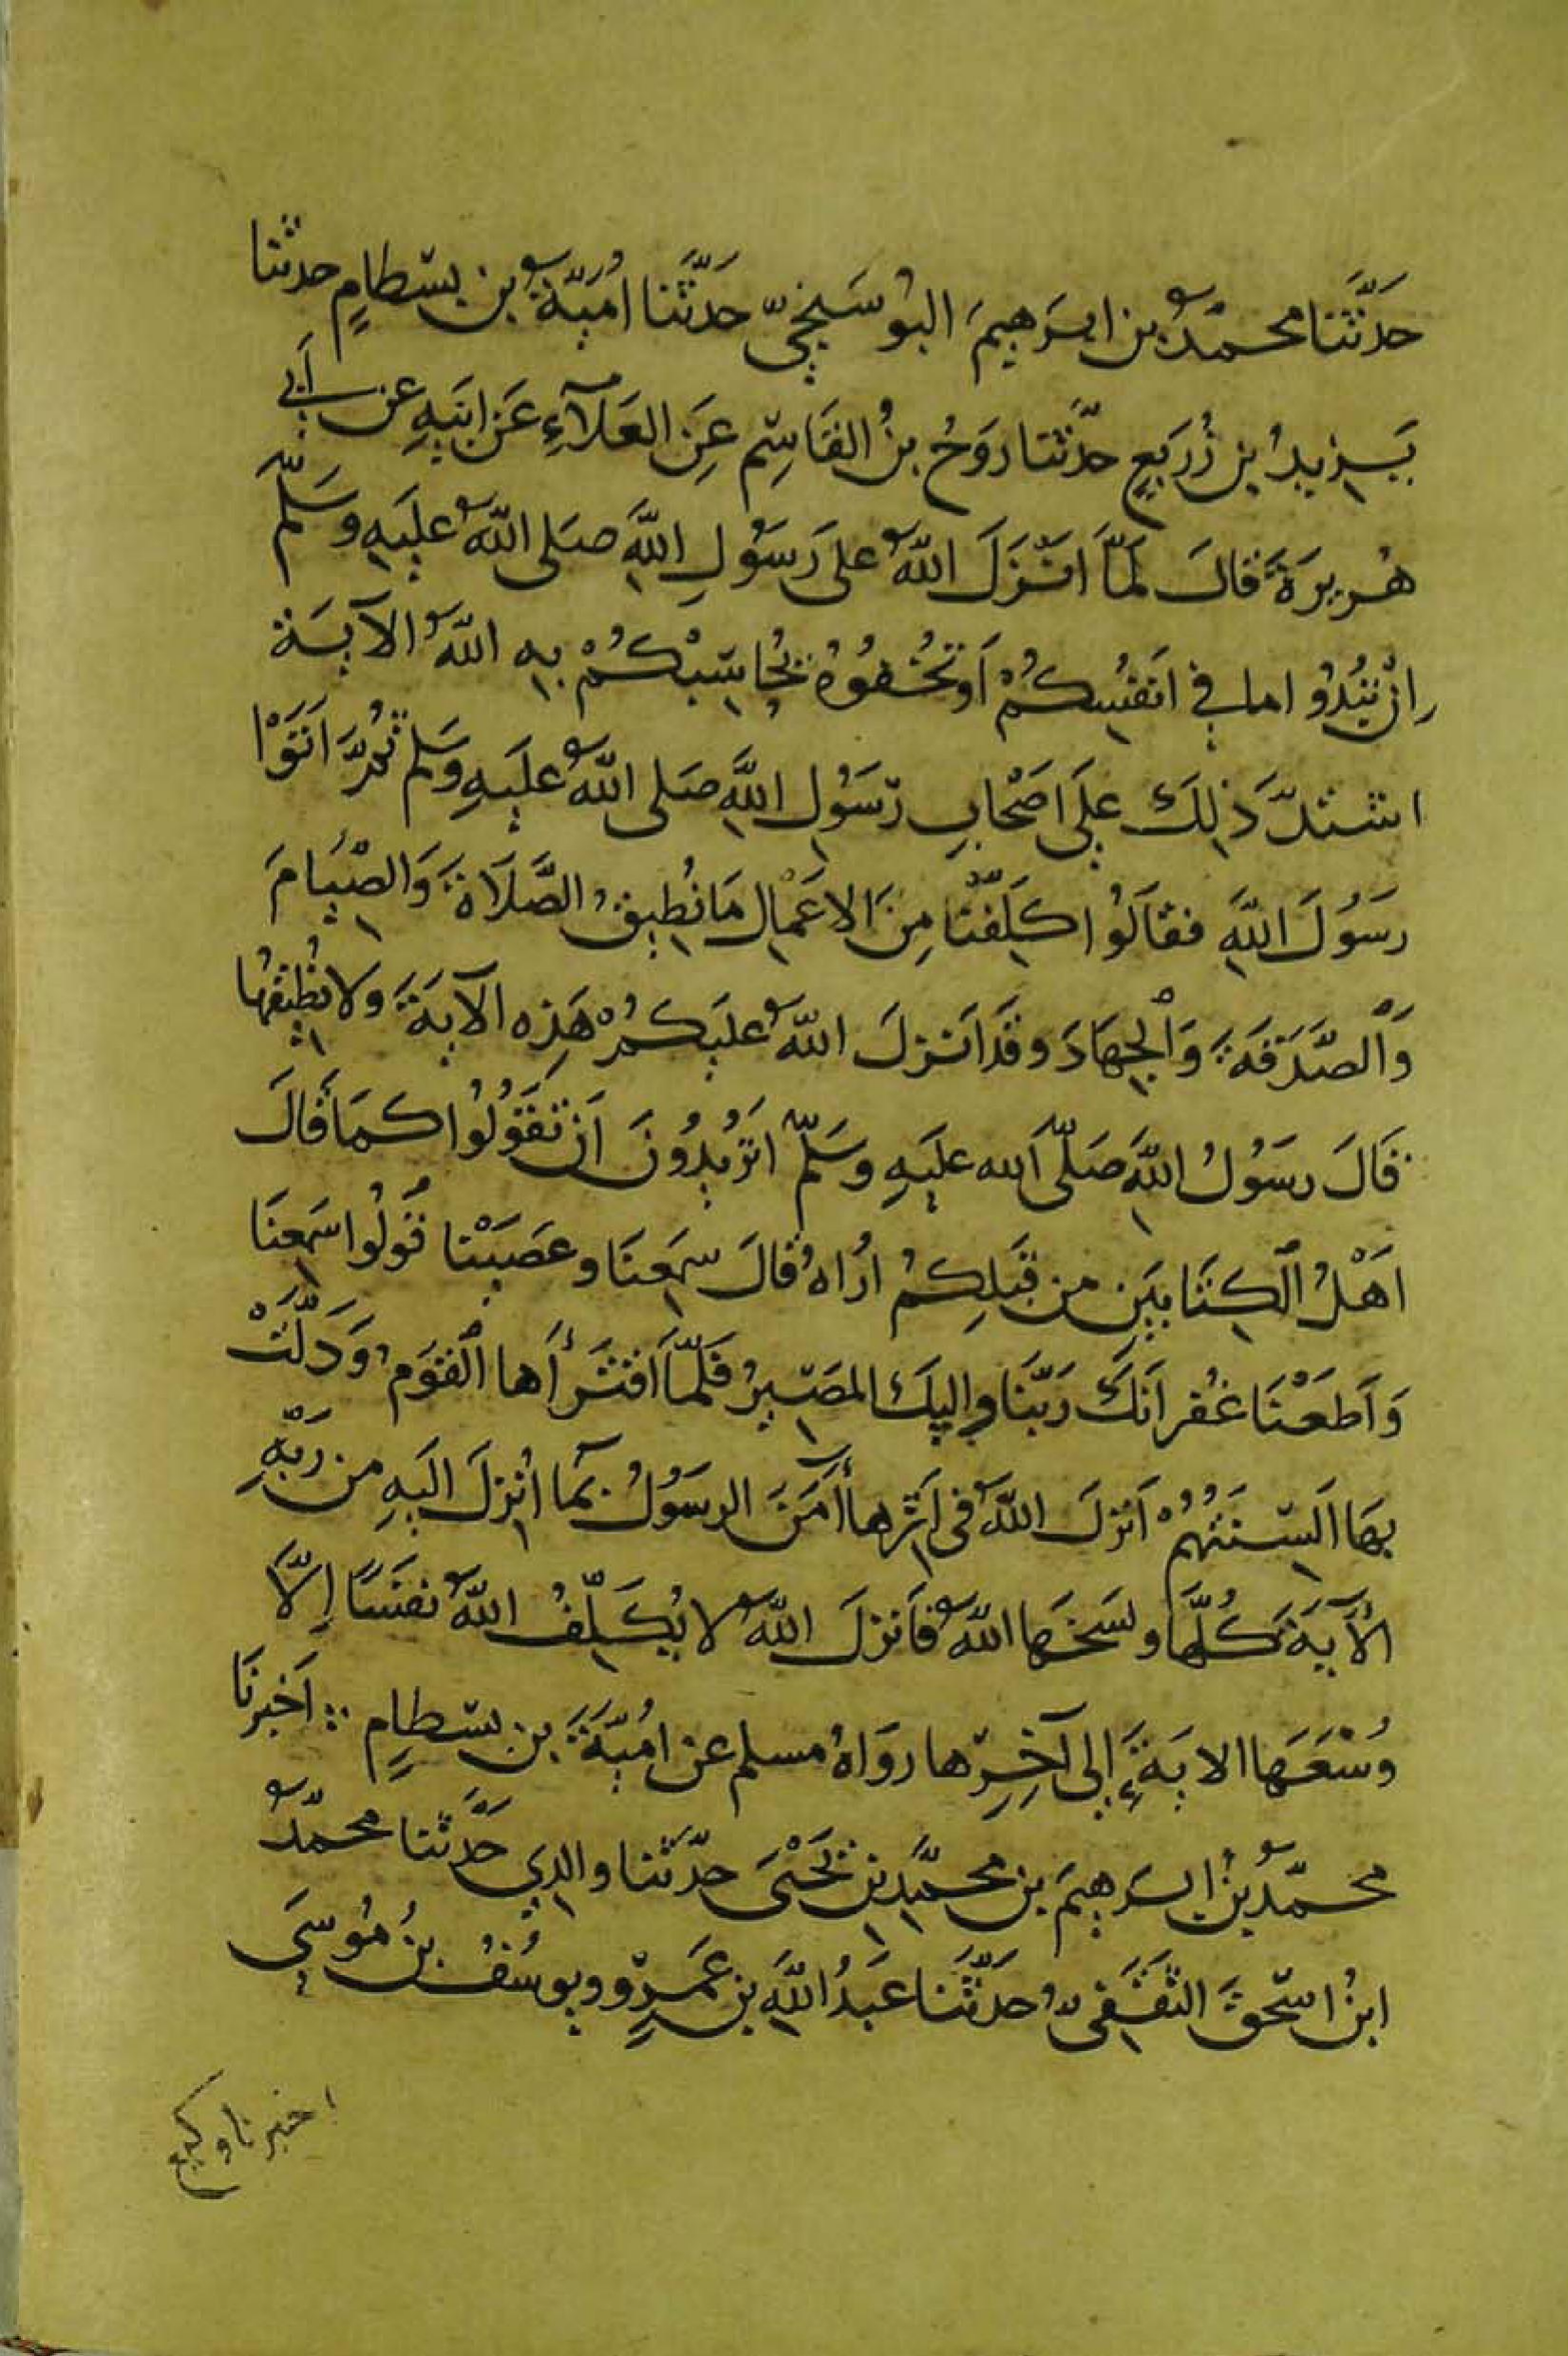 حَدَّثَنَا محمّدُ بن ابرَهيمَ البُوسَنجيّ حَدَّثَنا اُمَيّةُ بن بسْطامٍ حدثنا
يَزيدُ ابن زُرَيعٍ حدّثنا رَوحُ بنُ القَاسِمِ عَنِ العَلآءِ عَن ابيَهِ عن أَبي
هُريرَةَ قالَ لمَّا اَنْزَلَ اللّٰهُ على رَسُولِ اللّٰهِ صَلى اللّٰهُ عليَهِ وسَلّمَ
اِنْ تُبْدُوا ما في اَنفُسِكُمْ اَو تُخْفُوهُ يُحاسِبْكُمْ بِهِ اللّٰهُ الآيَة
اشتدّ ذلِكَ علَى اَصْحابِ رّسَوُل اللّٰهِ صَلى اللّٰهُ علَيهِ وسَلم ثُمَّ اَتَوْا
رَسُولَ اللّٰهِ فقالَوُا كلّفنَا مِنَ الاعَمْالِ مَا نُطِيقُ الصَّلَاةَ وَالصّيَامَ
وَالصَّدَقَةَ وَالجِهَادَ وقَد اَنزلَ اللّٰهُ عليَكمُ هَذِه الآيَةَ ولا نُطِيقهُا
قَالَ رسَوُلُ اللّٰهِ صَلّى اَلله علَيهِ وسَلمّ اتَرُيدُونَ اَن تقَوُلُوا كمَا قَالَ
اَهْلُ الكِتَابيَنِ من قَبلِكُمُ اُرُاهُ قالَ سمِعنَا وعصَيْنا قُولُوا سَمِعنَا
وَاَطعَنَا غُفرانَكَ رَبّنَا واِليكَ المصَيرُ فَلمّا اقتَرأَها القَوَمُ وَدَلَّتْ
بهَا اَلسِنَتهُمْ اَنزلَ اللّٰهُ فى اَثِرها أمَنَ الرسَوُلُ بمَا اُنزِلَ اليَهِ من رَبّهِ
الأيَةَ كُلّهَا ونسَخَها اللّٰهُ فاَنزلَ اللّٰهُ لا يُكلّفُ اللّٰهُ نفسًا اِلّا
وُسْعَهَا الايَةَ إلى آخِرِها روَاهُ مسلم عن اُميّةَ بن بسْطامٍ ؞ اَخبرنَا
محمّدُ بنُ ابرهيمَ بن محمّدِ بنِ يَحْيىَ حدّثنا والدِي حَدّثنا محمّدُ
ابنُ اسحٰقَ الثقَفِىُّ حَدّثَنا عَبدُ اللّٰهِ بنِ عَمرٍو ويوسُفُ بنُ مُوسىَ
اخبرنا وكيع